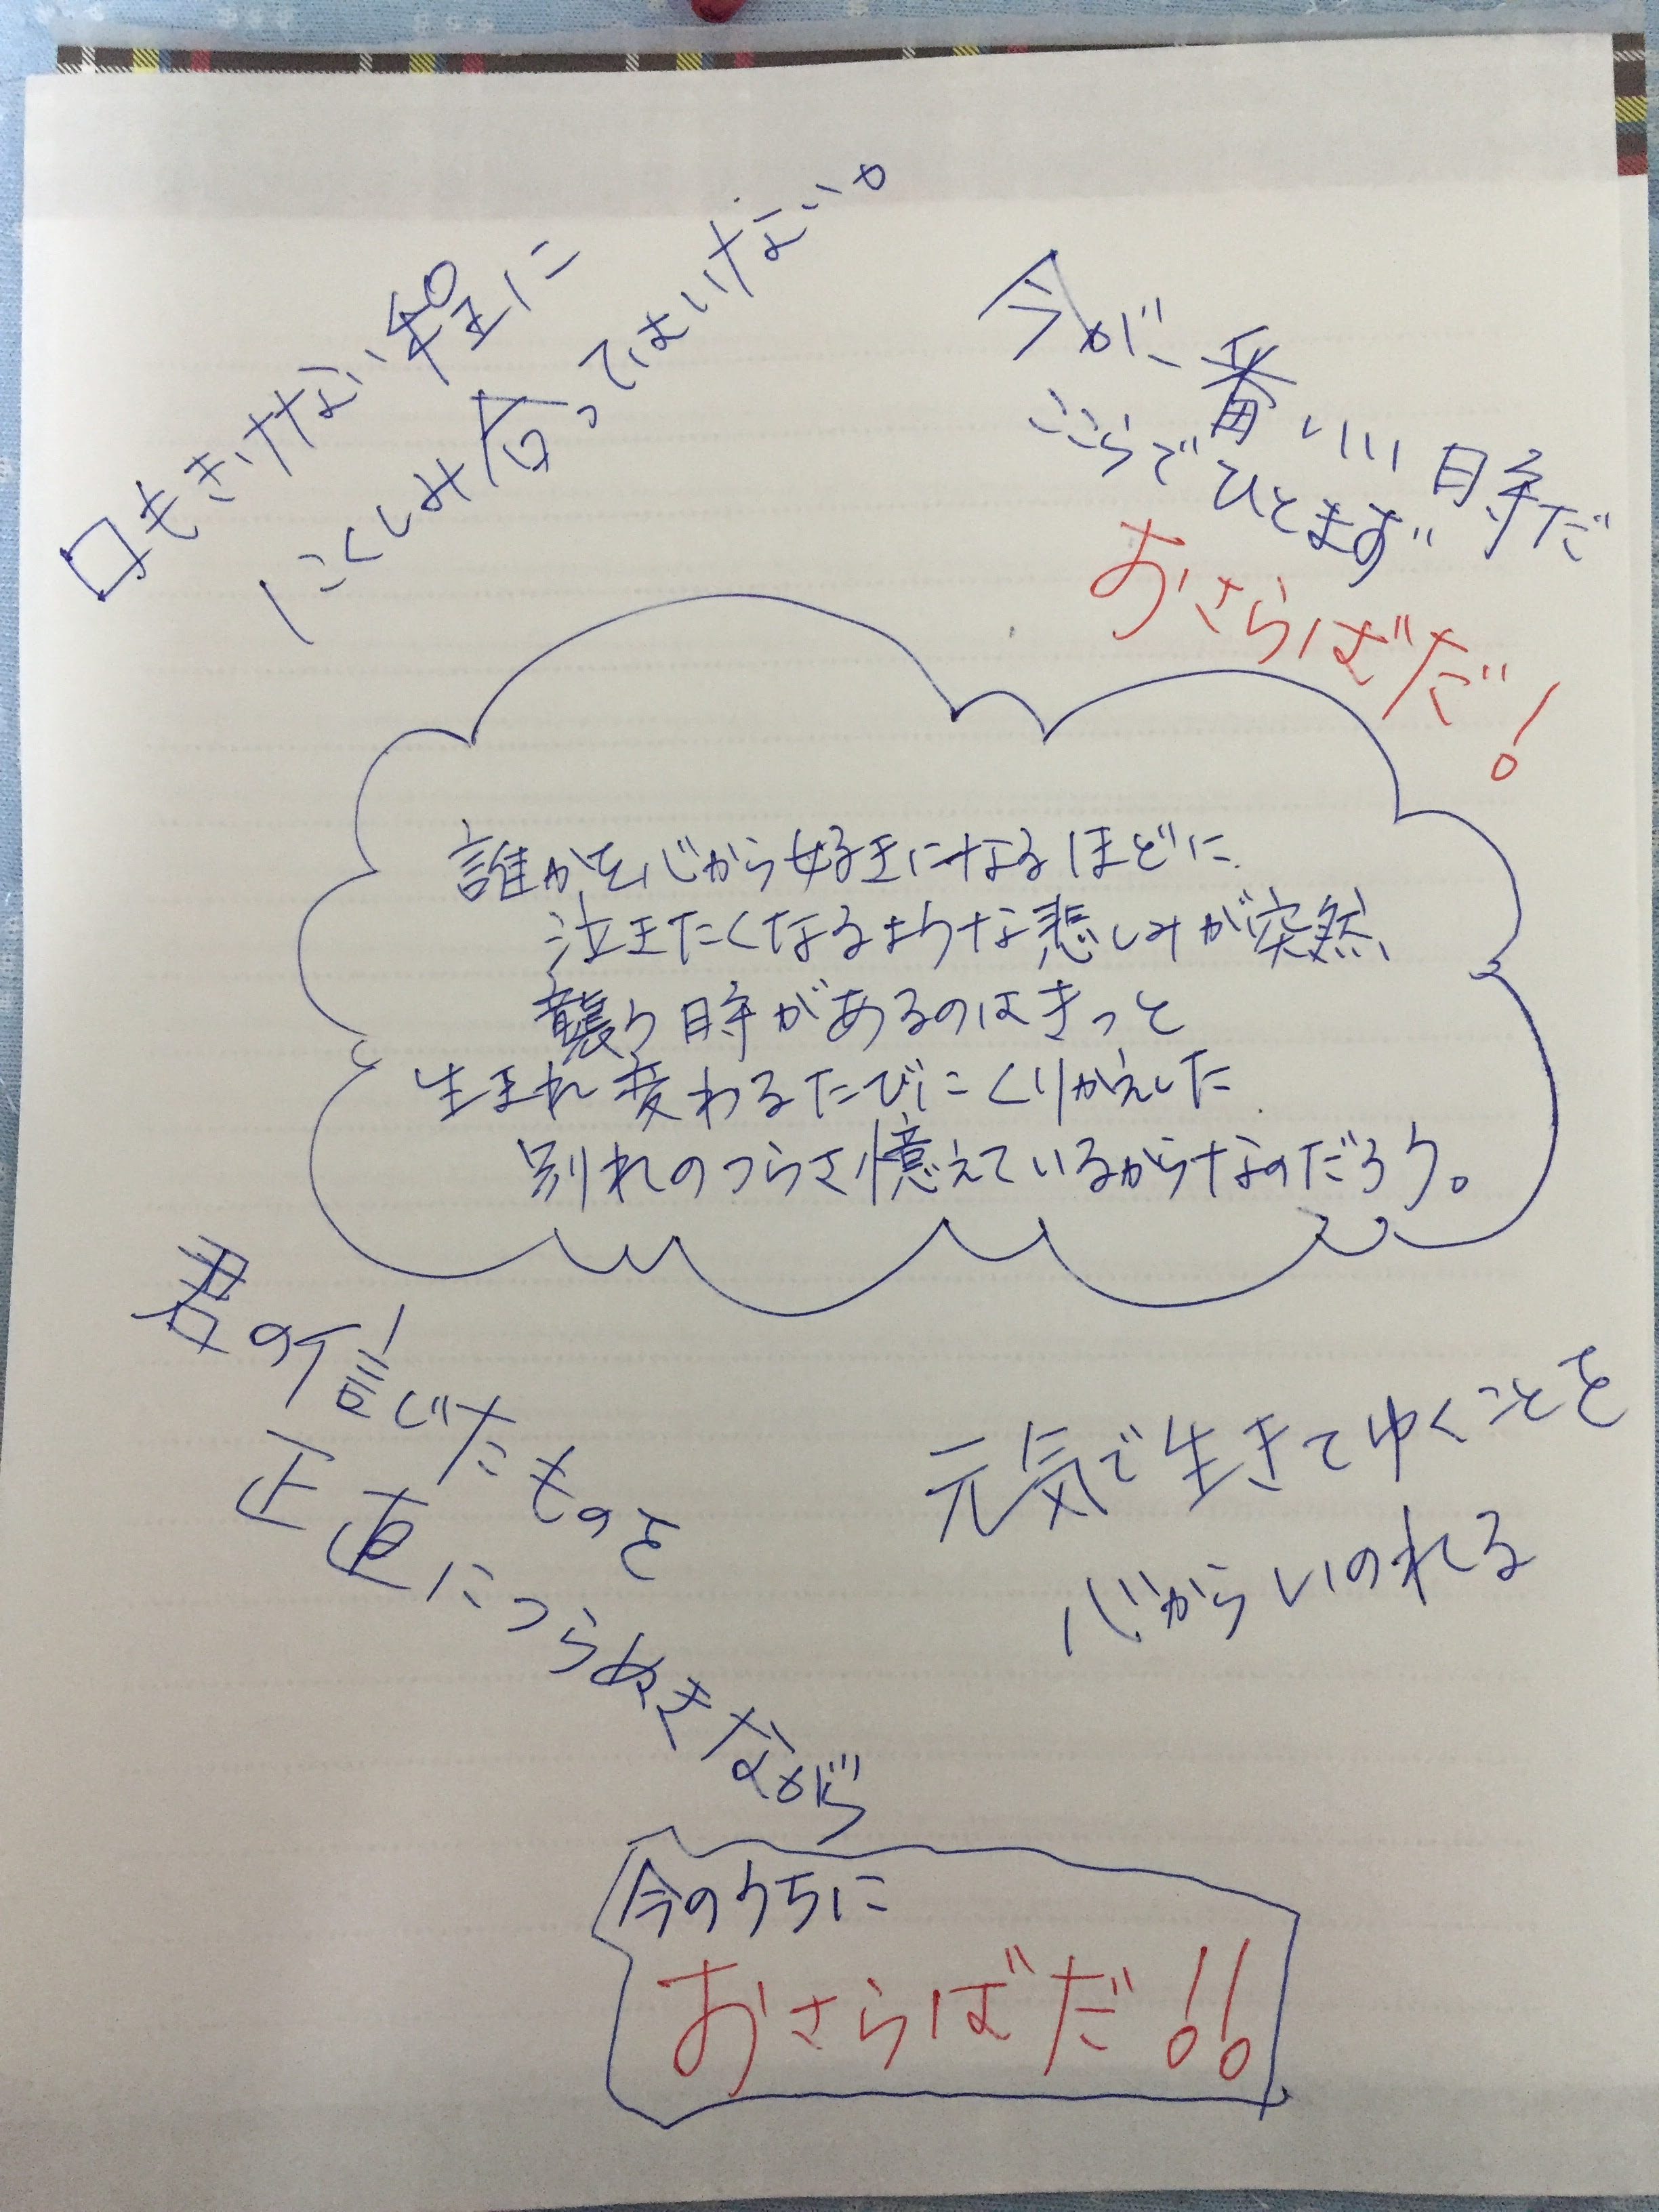 口もきけない程に
にくしみ合ってはいけない。
今が一番いい時だ
ここらでひとまず
おさらばだ!
誰かを心から好きになるほどに
泣きたくなるような悲しみが突然
襲う時があるのはきっと
生まれ変わるたびにくりかえした
別れのつらさ憶えているからなのだろう。
君の信じたものを
正直につらぬきながら
元気で生きてゆくことを
心からいのれる
今のうちに
おさらばだ!!